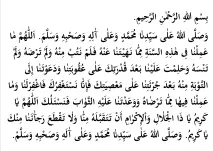 بِسْمِ اللهِ الرَّحْمٰنِ الرَّحِيمِ.
وَصَلَّى اللهُ عَلَى سَيِّدِنَا مُحَمَّدٍ وَعَلَى آلِهِ وَصَحْبِهِ وَسَلَّمَ. اَللّٰهُمَّ مَا
عَمِلْنَا فِي هٰذِهِ السَّنَةِ مِمَّا نَهَيْتَنَا عَنْهُ فَلَمْ نَتُبْ مِنْهُ وَلَمْ تَرْضَهُ وَلَمْ
تَنْسَهُ وَحَلِمْتَ عَلَيْنَا بَعْدَ قُدْرَتِكَ عَلَى عُقُوبَتِنَا وَدَعَوْتَنَا إِلَى
التَّوْبَةِ مِنْهُ بَعْدَ جُرْأَتِنَا عَلَى مَعْصِيَتِكَ فَإِنَّا نَسْتَغْفِرُكَ فَاغْفِرْلَنَا وَمَا
عَمِلْنَا فِيهَا مِمَّا تَرْضَاهُ وَوَعَدْتَنَا عَلَيْهِ الثَّوَابَ فَنَسْئَلُكَ اَللّٰهُمَّ يَا
كَرِيمُ يَا ذَا الْجَلَالِ وَالْإِكْرَامِ أَنْ تَتَقَبَّلَهُ مِنَّا وَلَا تَقْطَعْ رَجَائَنَا مِنْكَ
يَا كَرِيمُ. وَصَلَّى اللهُ عَلَى سَيِّدِنَا مُحَمَّدٍ وَعَلَى آلِهِ وَصَحْبِهِ وَسَلَّمَ.